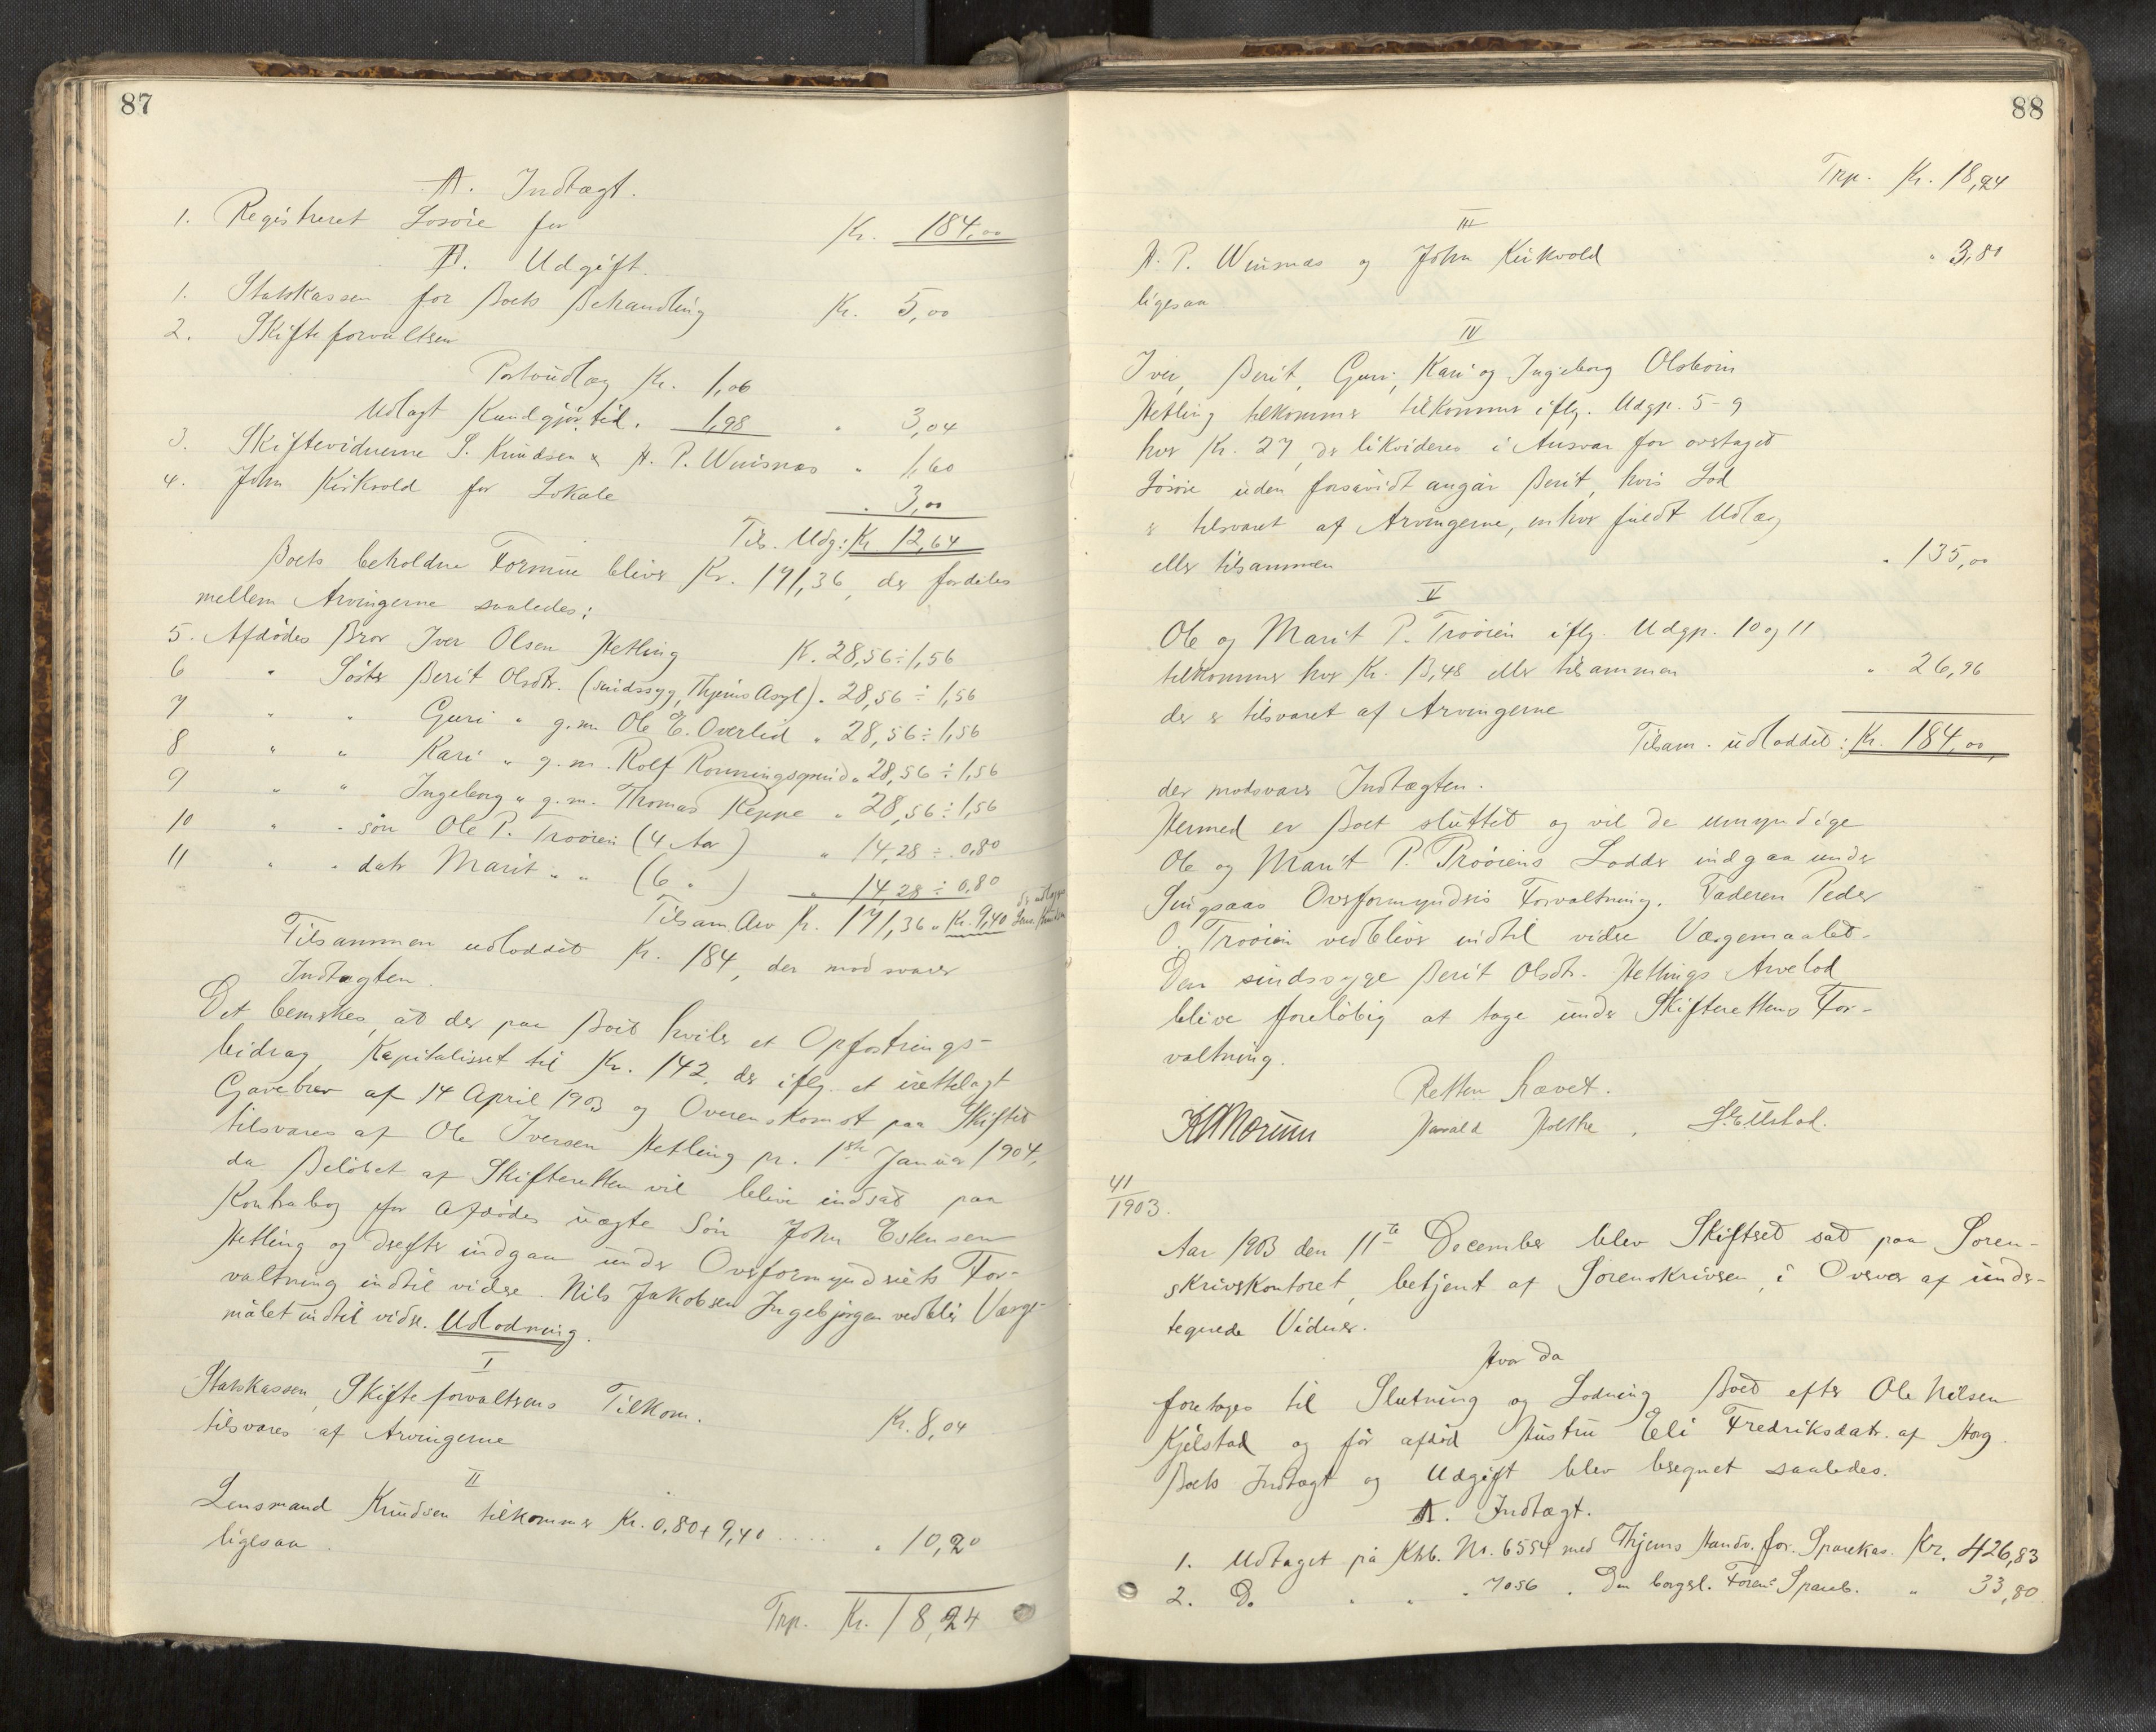 87
A. Indtægt.
1. Registreret Løsøre for Kr. 184,00
B. Udgift.
1. Statskassen for Boets Behandling Kr. 5,00
2. Skifteforvalteren
Portoudlæg Kr. 1,06
Udlagt Kundgjør.tid. 1,98 " 3,04
3. Skiftevidnerne S. Knudsen & A. P. Winsnes " 1,60
4. John Kirkvold for Lokale " 3,00
Tils. Udg: Kr 12,64
Boets beholdne Formue bliver Kr. 171,36, der fordeles
mellem Arvingerne saaledes:
5. Afdødes Bror Iver Olsen Hetling K. 28,56 ÷ 1,56
6 " Søster Berit Olsdtr. (sindssyg, Thjems Asyl) " 28,56 ÷ 1,56
7 " " Guri " g.m. Ole E. Overlid " 28,56 ÷ 1,56
8 " " Kari " g.m. Rolf Rønningsgrind " 28,56 ÷ 1,56
9 " " Ingeborg " g.m. Thomas Reppe " 28,56 ÷ 1,56
10 " " søn Ole P. Trøøien (4 Aar) " 14,28 ÷ 0,80
11 " " datr Marit " " (6 " ) " 14,28 ÷ 0,80
Tilsam. Arv K. 171,36 " Kr. 9,40 der udlægges Lens. Knudsen
Tilsammen udloddet Kr. 184, der modsvarer
Indtægten.
Det bemerkes, at der paa Boet hviler et Opfostrings-
bidrag, Kapitaliseret til Kr. 142, der iflg. et irettelagt
Gavebrev af 14 April 1903 og Overenskomst paa Skiftet
tilsvares af Ole Iversen Hetling pr. 1ste Januar 1904,
da Beløbet af Skifteretten vil blive indsat paa
Kontrabog for afdødes uægte Søn John Estensen
Hetling og derefter indgaa under Overformynderiets For-
valtning indtil videre. Nils Jakobsen Ingebjørgen vedbliv Værge-
målet indtil videre. Udlodning.
I
Statskassen, Skifteforvalterens Tilkom.
tilsvares af Arvingerne Kr. 8,04
II
Lensmand Knudsen tilkommer Kr. 0,80 + 9,40 ..... " 10,20
ligesaa.
Trp. Kr. 18,24
88
Trp. Kr. 18,24
III
A. P. Winsnes og John Kirkvold " 3,80
ligesaa
IV
Iver, Berit, Guri, Kari og Ingeborg Olsbørn
Hetling tilkommer tilkommer iflg. Udgp. 5-9
hver Kr. 27, der likvideres i Ansvar for overtaget
Løsøre uden forsåvidt angår Berit, hvis Lod
er tilsvaret af Arvingerne, enhver fuldt Udlæg
eller tilsammen " 135,00
V
Ole og Marit P. Trøøien iflg. Udgp. 10 og 11
tilkommer hver Kr. 13,48 eller tilsammen " 26,96
der er tilsvaret af Arvingerne
Tilsam. udloddet: Kr. 184,00
der modsvarer Indtægten.
Hermed er Boet sluttet og vil de umyndige
Ole og Marit P. Trøøiens Lodder indgaa under
Singsaas Overformynderis Forvaltning. Faderen Peder
O. Trøøien vedbliver indtil videre Værgemaalet.
Den sindssyge Berit Olsdtr. Hetlings Arvelod
blive foreløbig at tage under Skifterettens For-
valtning.
Retten hævet.
Harald Holthe.
41
1903.
Aar 1903 den 11te December blev Skifteret sat paa Soren-
skriverkontoret, betjent af Sorenskriveren, i Overvær af under-
tegnede Vidner.
Hvor da
foretoges til Slutning og Lodning Boet efter Ole Nilsen
Kjelstad og før afdød Hustru Eli Fredriksdatr. af Horg.
Boets Indtægt og Udgift blev beregnet saaledes.
A. Indtægt.
1. Udtaget på Ktrb. Nr. 6554 med Thjems Handv. for. Sparekas. Kr. 426,83
2. Do " " " 7056 " Den borgerl. Foren. Spareb. " 33,80